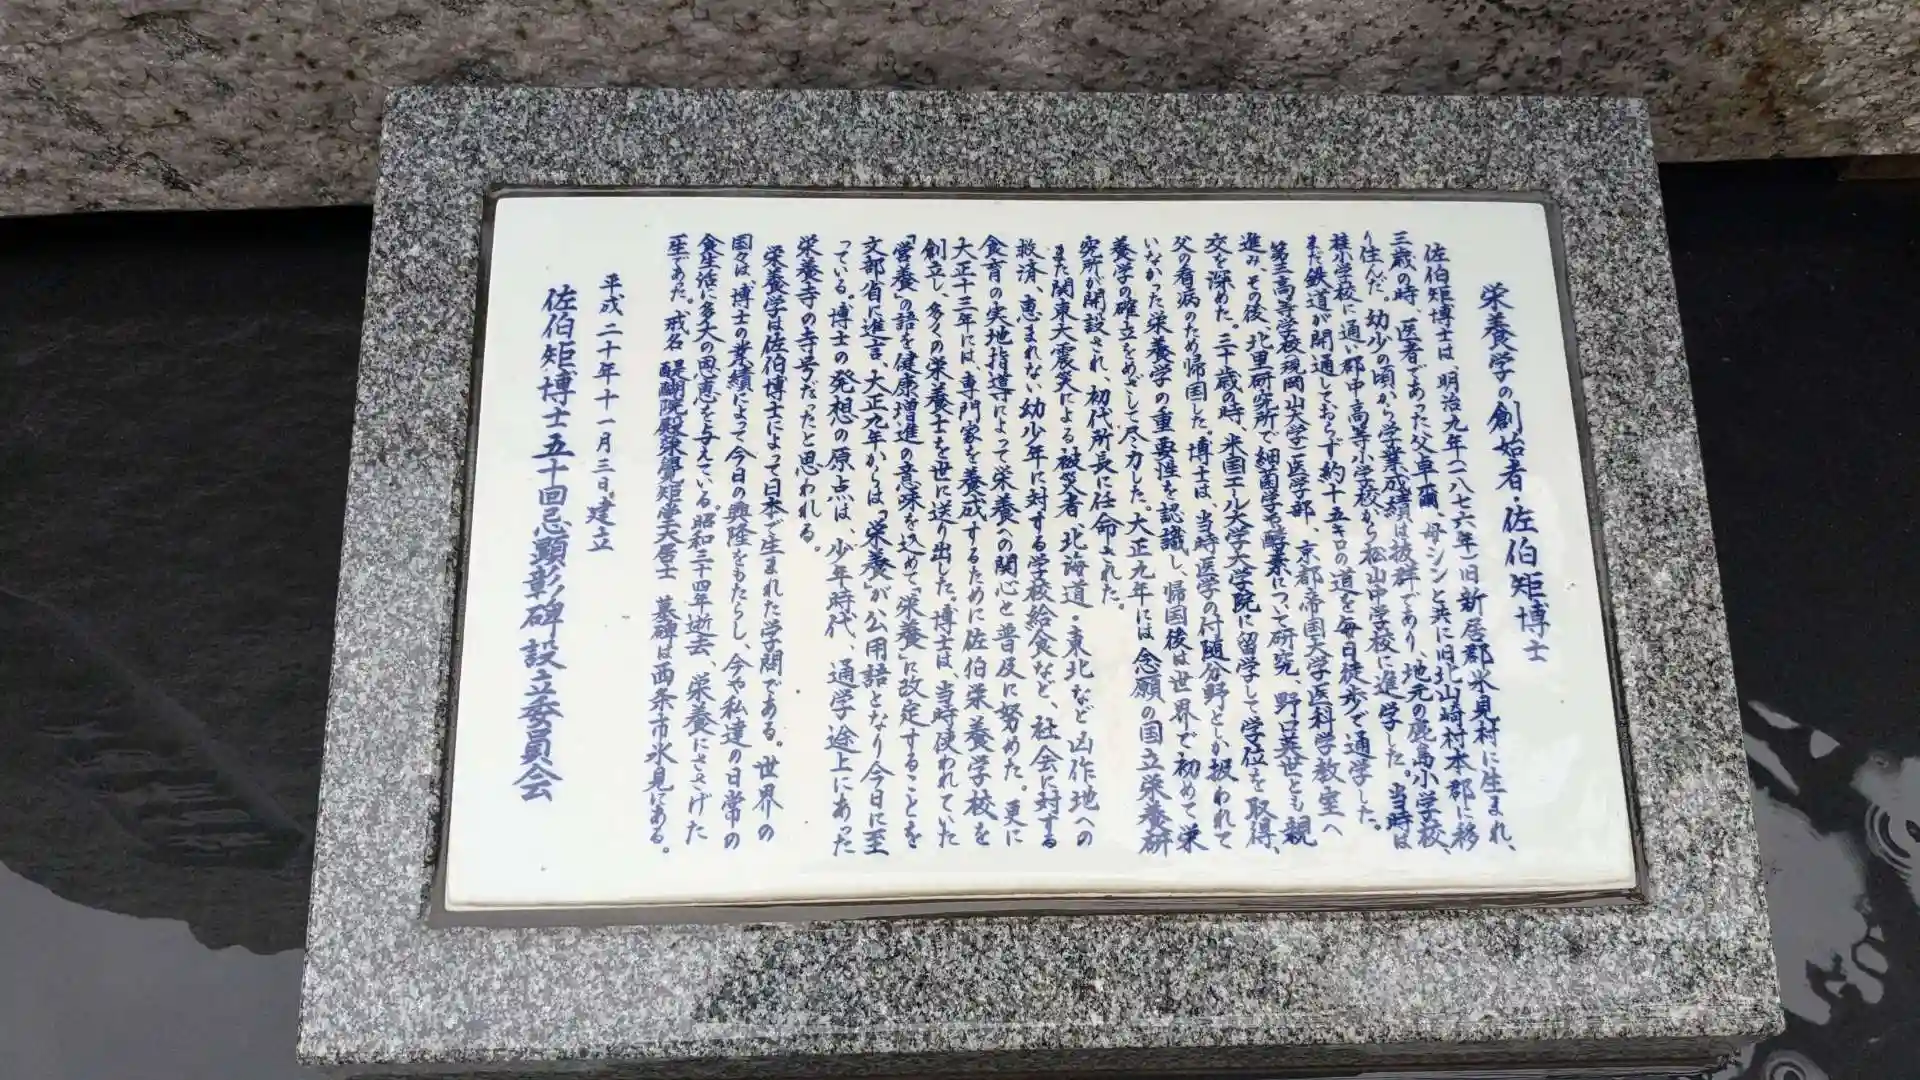 栄養学の創始者・佐伯矩博士
佐伯矩博士は、明治九年(一八七六年)旧新居郡氷見村に生まれ、
三歳の時、医者であった父卓爾、母シンと共に旧北山崎村本郡に移
り住んだ。幼少の頃から学業成績は抜群であり、地元の鹿島小学校、
桂小学校に通い郡中高等小学校から松山中学校に進学した。当時は
まだ鉄道が開通しておらず約十五キロの道を毎日徒歩で通学した。
第三高等学校(現岡山大学)医学部、京都帝国大学医科学教室へ
進み、その後、北里研究所で細菌学を酵素について研究、野口英世とも親
交を深めた。三十歳の時、米国エール大学大学院に留学して学位を取得、
父の看病のため帰国した。博士は、当時医学の付随分野としか扱われて
いなかった栄養学の重要性を認識し、帰国後は世界で初めて栄
養学の確立をめざして尽力した。大正九年には念願の国立栄養研
究所が開設され、初代所長に任命された。
また関東大震災による被災者、北海道・東北など凶作地への
救済、恵まれない幼少年に対する学校給食など、社会に対する
食育の実地指導によって栄養への関心と普及に努めた。更に
大正十三年には、専門家を養成するために佐伯栄養学校を
創立し、多くの栄養士を世に送り出した。博士は、当時使われていた
「営養」の語を健康増進の意味を込めて「栄養」に改定することを
文部省に進言、大正九年からは「栄養」が公用語となり今日に至
っている。博士の発想の原点は、少年時代、通学途上にあった
栄養寺の寺号だったと思われる。
栄養学は佐伯博士によって日本で生まれた学問である。世界の
国々は、博士の業績によって今日の興隆をもたらし、今や私達の日常の
食生活に多大の恩恵を与えている。昭和三十四年逝去、栄養にささげた
一生であった。戒名 醍醐院殿栄覺矩堂大居士 墓碑は西条市氷見にある。
平成二十年十一月三日建立
佐伯矩博士五十回忌顕彰碑設立委員会